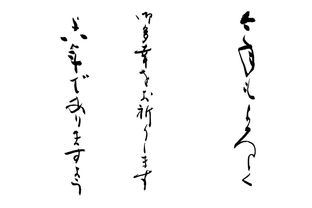 今年もよろしく
御多幸をお祈りします
年でありますよう